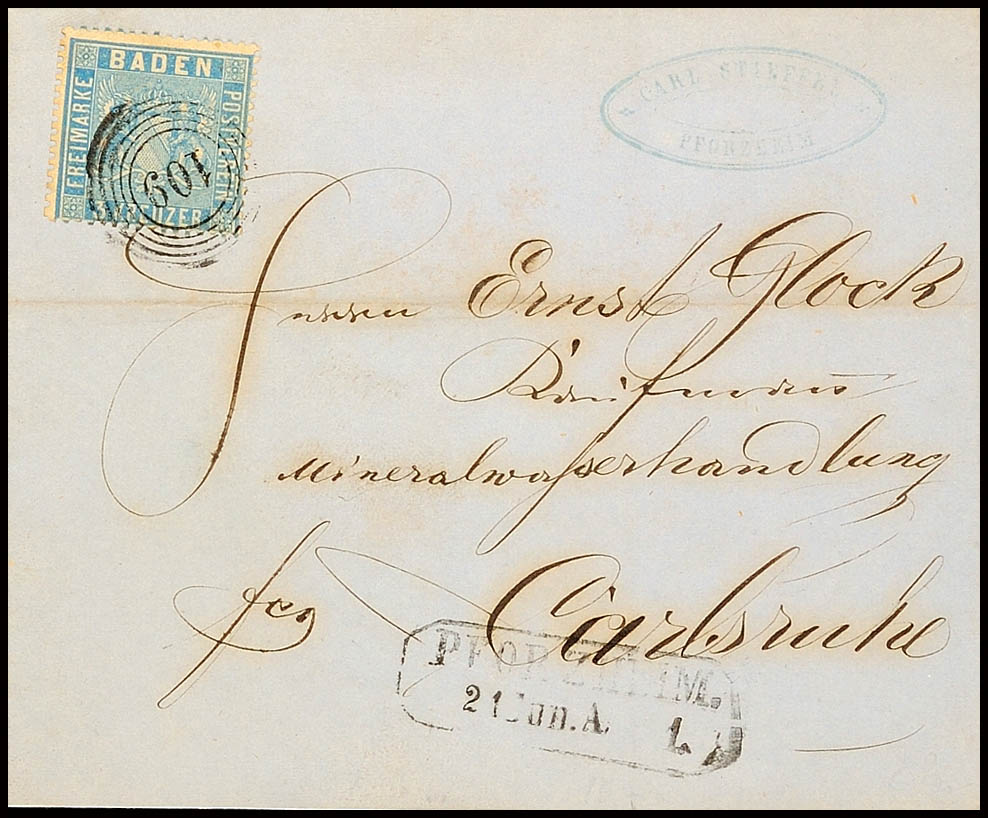 BADEN
FREIMARKE
POSTVEREIN
3 KREUZER
109
CARL STIEFEL
PFORZHEIM
Herrn Ernst Glock
Kaufmann
Mineralwasserhandlung
fco Carlsruhe
PFORZHEIM.
21 Jun. A. 1.